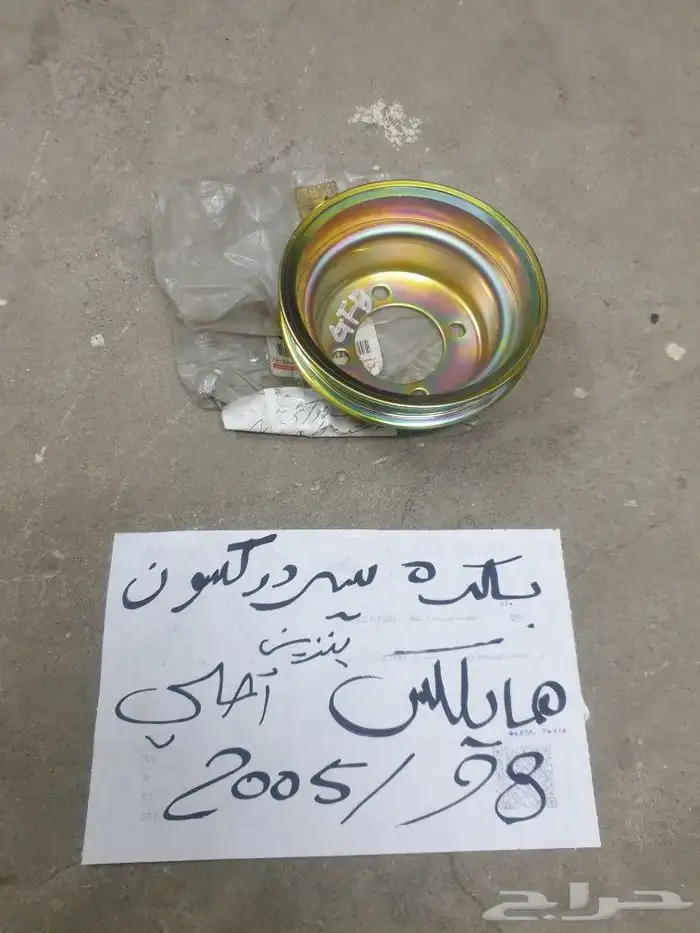 GFB
بكره سير دركسون
بنزين
هايلكس اصلي
2005/98
حراج